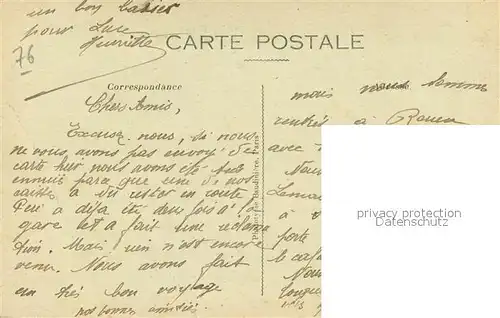 un bon baiser
pour Luce
Henriette
76
CARTE POSTALE
Correspondance
Chers Amis,
Excusez nous, si nous
ne vous avons pas envoyé de
carte hier nous avons été très
ennuis parce que une de nos
caisses a dû rester en route
Père a déja été deux fois à la
gare et a fait une réclama
tion. Mais rien n'est encore
venu. Nous avons fait
un très bon voyage
nos bonnes amitiés
Phototypie Baudinière, Paris
mais nous sommes
rentrés à Rouen
avec
Nous
à
porte
le
Nous
privacy protection
Datenschutz